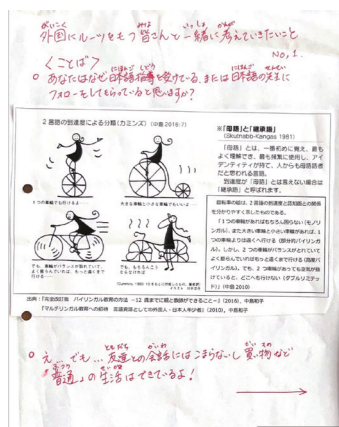 外国にルーツをもつ皆さんと一緒に考えていきたいこと
No,1.
<ことば>
○ あなたはなぜ日本語指導を受けている、または日本語の先生に
フォローをしてもらっていると思いますか?
2言語の到達度による分類(カミンズ)(中島 2016:7)
1つの車輪でも行けるよ……
大きな車輪と小さな車輪でもいいよ…
でも、車輪がバランスが取れていて、
よく膨らんでいれば、もっと遠くまで
行ける……
でも、もちろんこう
なら
※「母語」と「継承語」
(Skutnabb-Kangas 1981)
「母語」とは、一番初めに覚え、最も
よく理解でき、最も頻繁に使用し、アイ
デンティティが持て、人からも母語話者
だと思われる言語。
到達度が「母語」とは言えない場合は
「継承語」と呼ばれます。
自転車の絵は、2言語の到達度と認知面との関係
を分かりやすく示したものである。
「1つの車輪があればもちろん困らない(モノリ
ンガル)、また大きい車輪と小さい車輪があれば、1
つの車輪よりは遠くへ行ける(部分的バイリンガ
ル)。しかし、2つの車輪がバランスがとれていて
よく膨らんでいればもっと遠くまで行ける(高度バ
イリンガル)。でも、2つ車輪があっても空気が抜
けていると、どこへも行けない(ダブルリミテッ
ド)」(中島 2010)
出典:『完全改訂版 バイリンガル教育の方法 ー12歳までに親と教師ができることー』(2016)、中島和子
『マルチリンガル教育への招待 言語資源としての外国人・日本人年少者』(2010)、中島和子
○ え…でも…友達との会話にはこまらないし買い物など
「普通」の生活はできているよ!